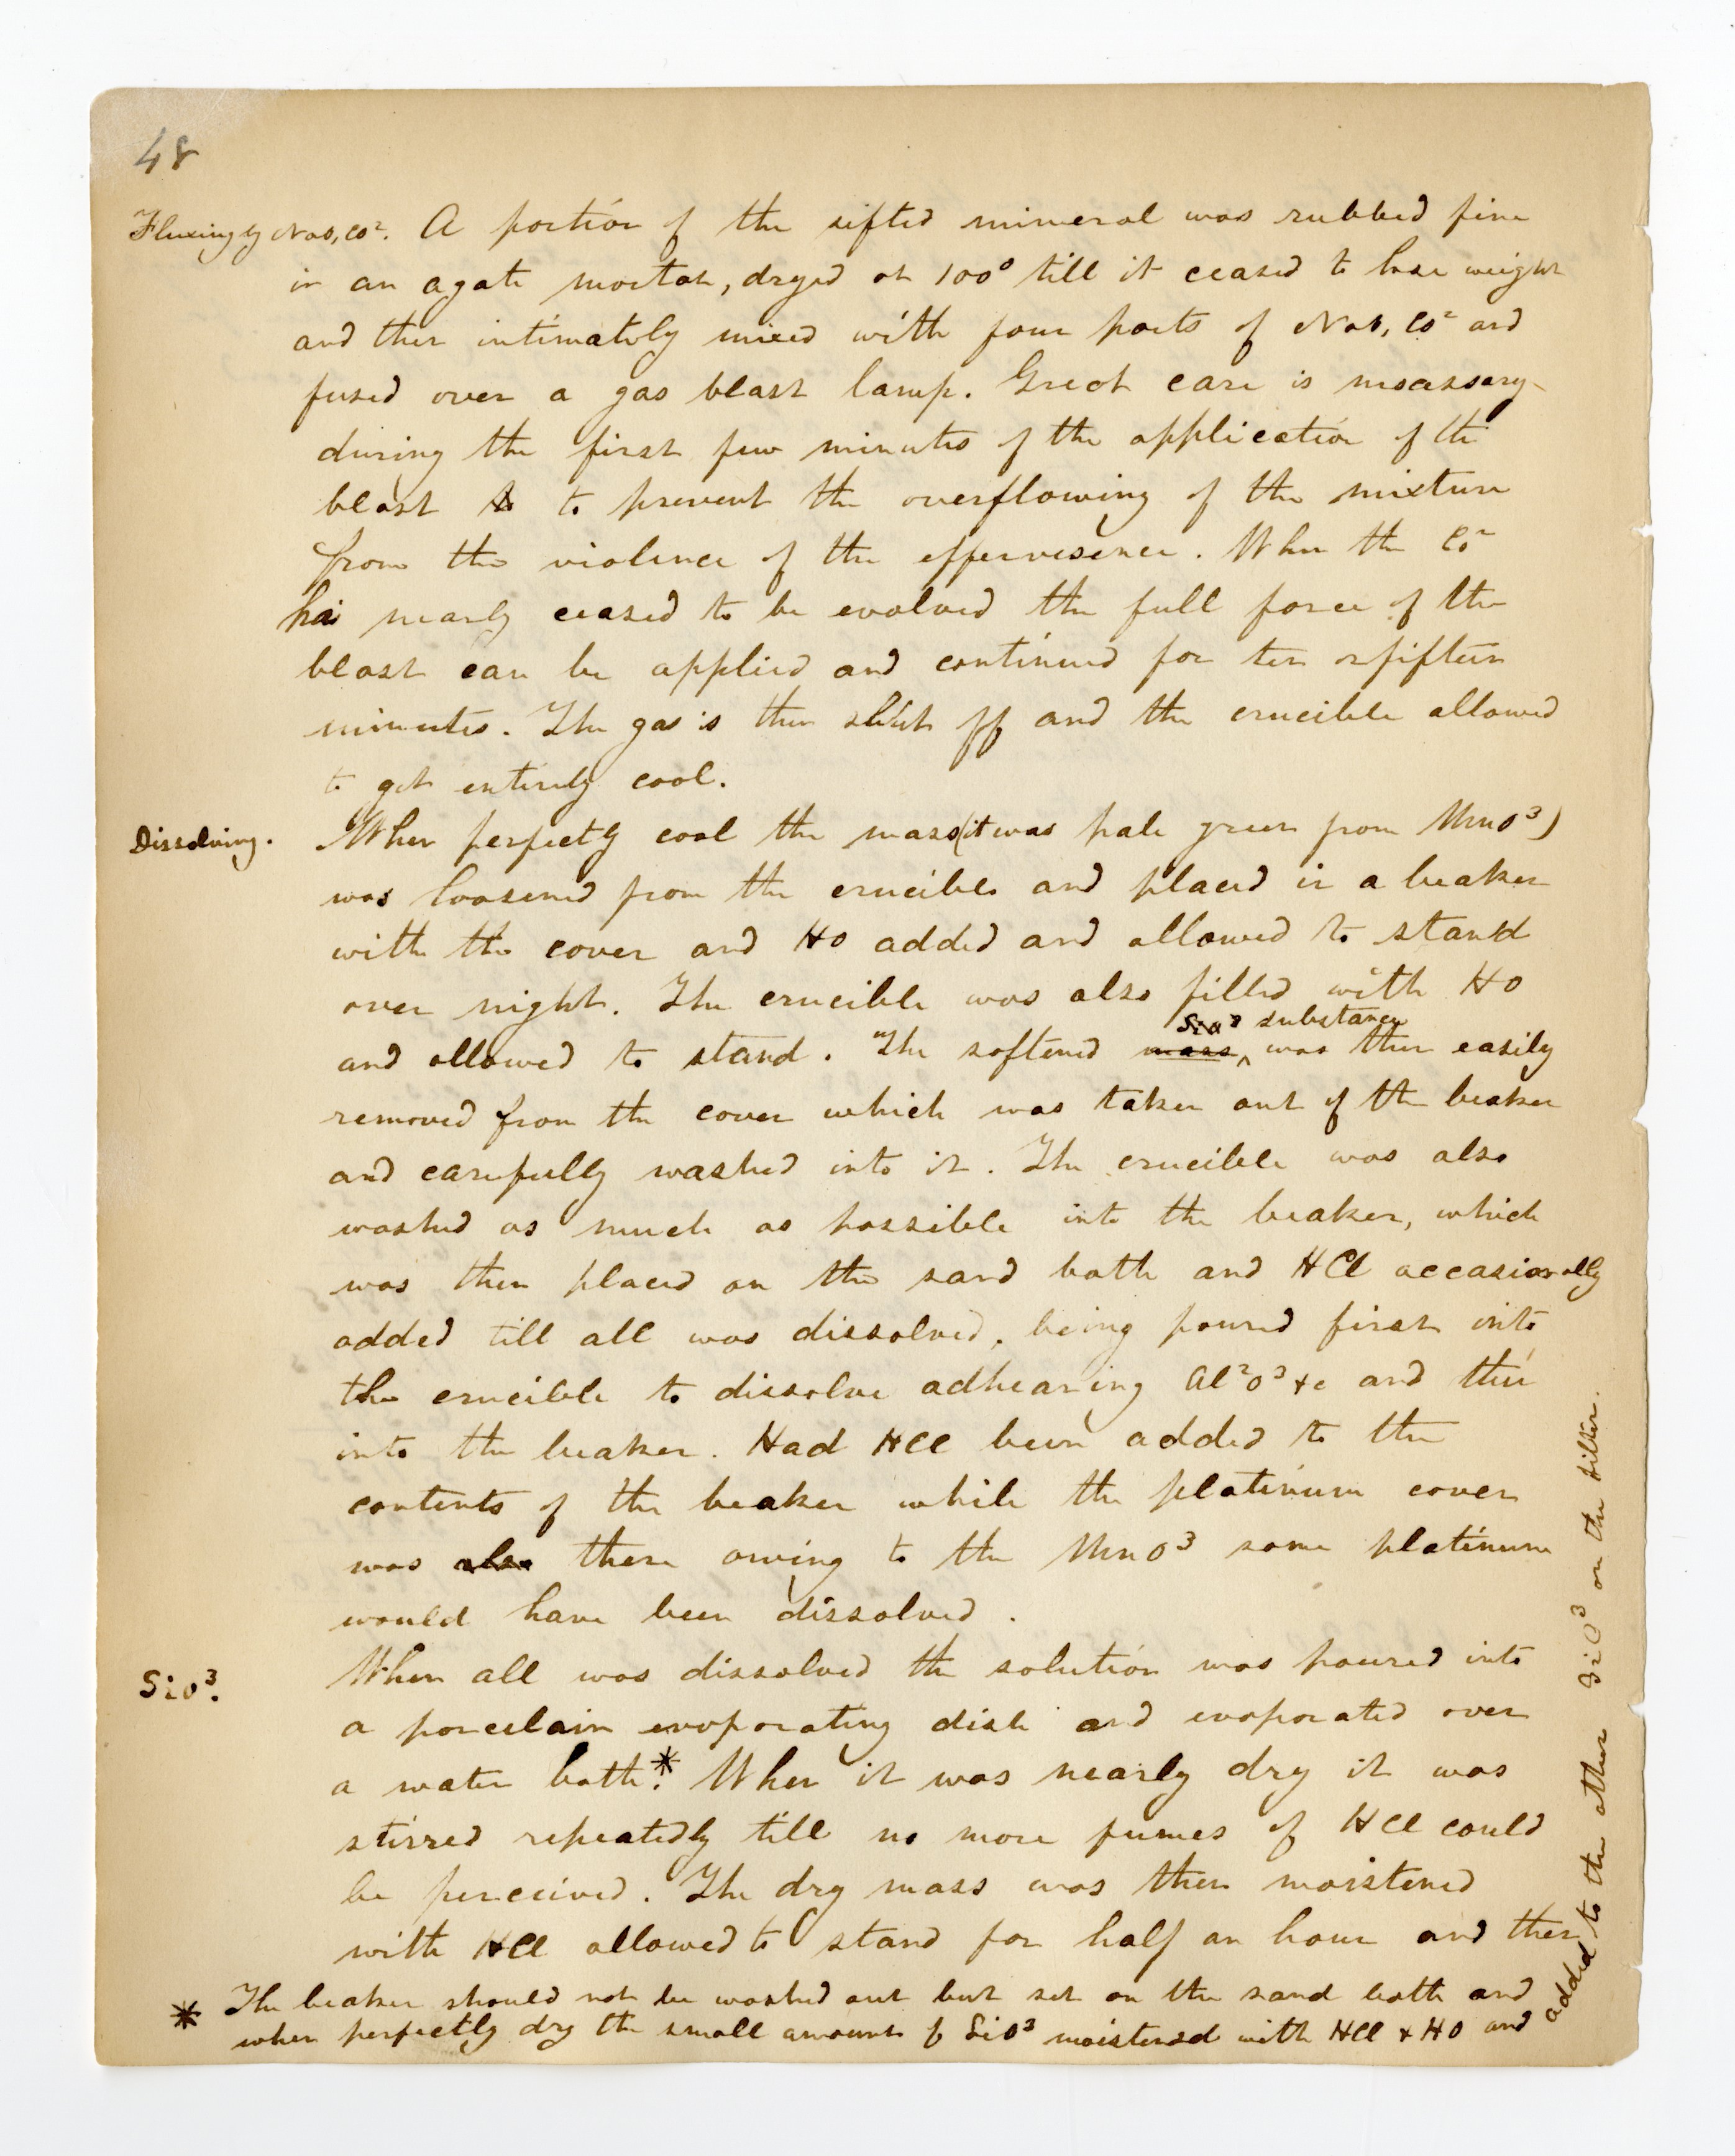 48
Fluxing by NaO, CO². A portion of the sifted mineral was rubbed fine
in an agate mortar, dryed at 100° till it ceased to lose weight
and then intimately mixed with four parts of NaO, CO² and
fused over a gas blast lamp. Great care is necessary
during the first few minutes of the application of the
blast to to prevent the overflowing of the mixture
from the violence of the effervesence. When the CO²
has nearly ceased to be evolved the full force of the
blast can be applied and continued for ten or fifteen
minutes. The gas is then shut off and the crucible allowed
to get entirely cool.
Dissolving. When perfectly cool the mass (it was pale green from MnO³)
was loosened from the crucible and placed in a beaker
with the cover and HO added and allowed to stand
over night. The crucible was also filled with HO
SiO³ substance
and allowed to stand. The softened mass ^ was then easily
removed from the cover which was taken out of the beaker
and carefully washed into it. The crucible was also
washed as much as possible into the beaker, which
was then placed on the sand bath and HCl occasionally
added till all was dissolved, being poured first into
the crucible to dissolve adhearing Al²O³ &c and then
into the beaker. Had HCl been added to the
contents of the beaker while the platinum cover
was also there owing to the MnO³ some platinum
would have been dissolved.
SiO³. When all was dissolved the solution was poured into
a porcelain evaporating dish and evaporated over
a water bath.* When it was nearly dry it was
stirred repeatedly till no more fumes of HCl could
be perceived. The dry mass was then moistened
with HCl allowed to stand for half an hour and then
* The beaker should not be washed out but set on the sand bath and
when perfectly dry the small amount of SiO³ moistened with HCl & HO and
added to the other SiO³ on the filter.